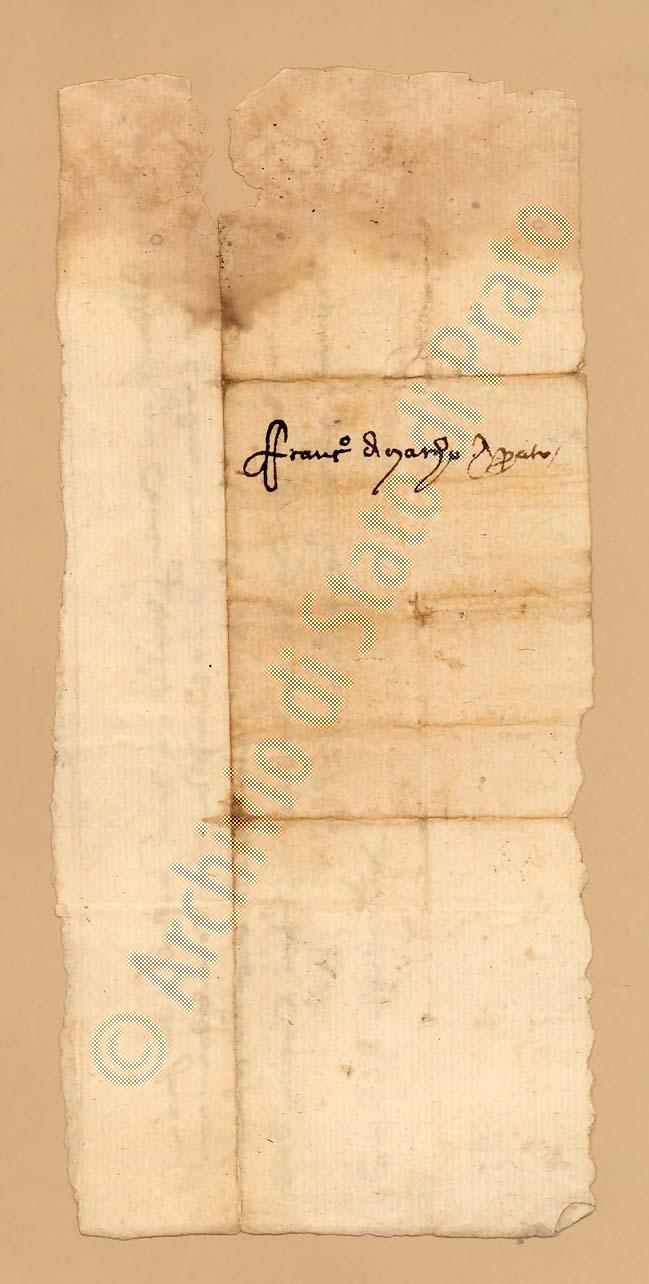 Franc.º di marcho da prato
© Archivio di Stato di Prato